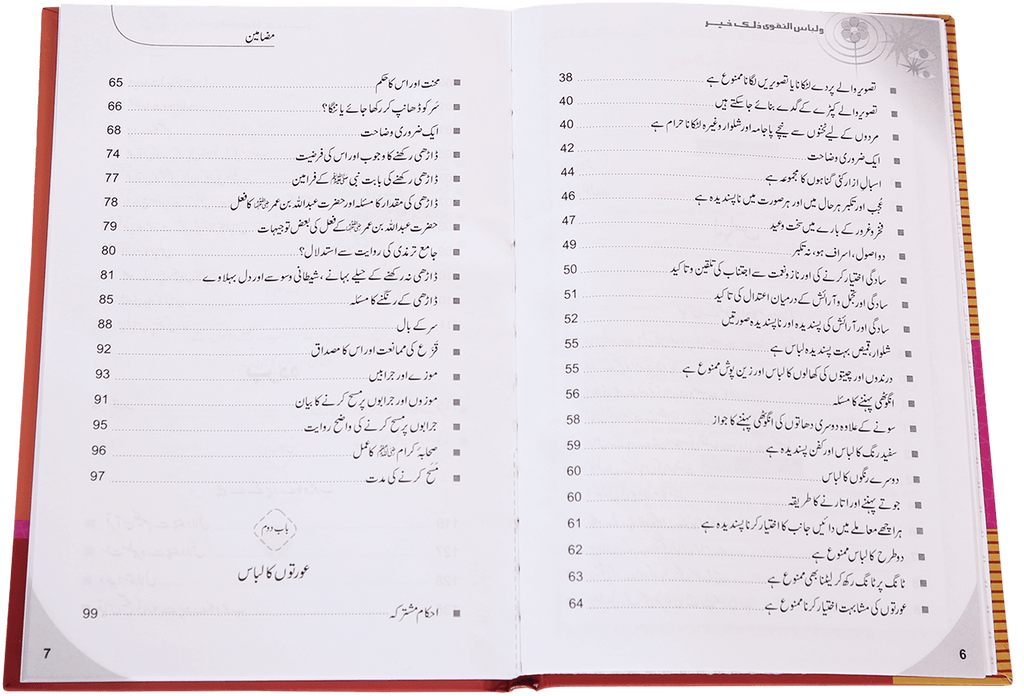 ولباس التقوى ذلك خير
تصویر والے پردے لٹکانا یا تصویریں لگانا ممنوع ہے 38
تصویر والے کپڑے کے گدے بنائے جا سکتے ہیں 40
مردوں کے لیے ٹخنوں سے نیچے پاجامہ اور شلوار وغیرہ لٹکانا حرام ہے 40
ایک ضروری وضاحت 42
اسبال ازار کئی گناہوں کا مجموعہ ہے 44
عُجب اور تکبر ہر حال میں اور ہر صورت میں ناپسندیدہ ہے 46
فخر و غرور کے بارے میں سخت وعید 47
دو اصول، اسراف ہو، نہ تکبر 49
سادگی اختیار کرنے کی اور ناز و نعمت سے اجتناب کی تلقین و تاکید 50
سادگی اور تجمل و آرائش کے درمیان اعتدال کی تاکید 51
سادگی اور آرائش کی پسندیدہ اور ناپسندیدہ صورتیں 52
شلوار قمیص بہت پسندیدہ لباس ہے 55
درندوں اور چیتوں کی کھالوں کا لباس اور زین پوش ممنوع ہے 55
انگوٹھی پہننے کا مسئلہ 56
سونے کے علاوہ دوسری دھاتوں کی انگوٹھی پہننے کا جواز 58
سفید رنگ کا لباس اور کفن پسندیدہ ہے 59
دوسرے رنگوں کا لباس 60
جوتے پہننے اور اتارنے کا طریقہ 60
ہر اچھے معاملے میں دائیں جانب کا اختیار کرنا پسندیدہ ہے 61
دو طرح کا لباس ممنوع ہے 62
ٹانگ پر ٹانگ رکھ کر لیٹنا بھی ممنوع ہے 63
عورتوں کی مشابہت اختیار کرنا ممنوع ہے 64
6
مضامین
مخنث اور اس کا حکم 65
سَر کو ڈھانپ کر رکھا جائے یا ننگا؟ 66
ایک ضروری وضاحت 68
ڈاڑھی رکھنے کا وجوب اور اس کی فرضیت 74
ڈاڑھی رکھنے کی بابت نبی ﷺ کے فرامین 77
ڈاڑھی کی مقدار کا مسئلہ اور حضرت عبداللہ بن عمر رضی اللہ عنہما کا فعل 78
حضرت عبداللہ بن عمر رضی اللہ عنہما کے فعل کی بعض توجیہات 79
جامع ترمذی کی روایت سے استدلال؟ 80
ڈاڑھی نہ رکھنے کے حیلے بہانے، شیطانی وسوسے اور دل بہلاوے 81
ڈاڑھی کے رنگنے کا مسئلہ 85
سر کے بال 88
قَزَع کی ممانعت اور اس کا مصداق 92
موزے اور جرابیں 93
موزوں اور جرابوں پر مسح کرنے کا بیان 91
جرابوں پر مسح کرنے کی واضح روایت 95
صحابۂ کرام رضی اللہ عنہم کا عمل 96
مَسْح کرنے کی مدت 97
باب دوم
عورتوں کا لباس
احکام مشترکہ 99
7